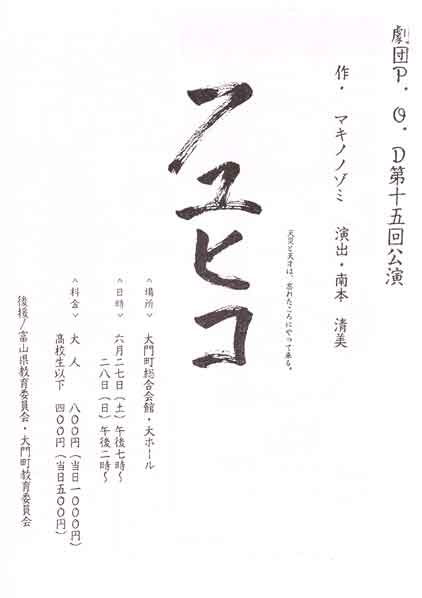 劇団P.O.D第十五回公演
作・マキノノゾミ　演出・南本　清美
フユヒコ
天災と天才は、忘れたころにやって来る。
＜場所＞　大門町総合会館・大ホール
＜日時＞　六月二七日（土）午後七時～
二八日（日）午後二時～
＜料金＞　大人　八〇〇円（当日一〇〇〇円）
高校生以下　四〇〇円（当日五〇〇円）
後援／富山県教育委員会・大門町教育委員会